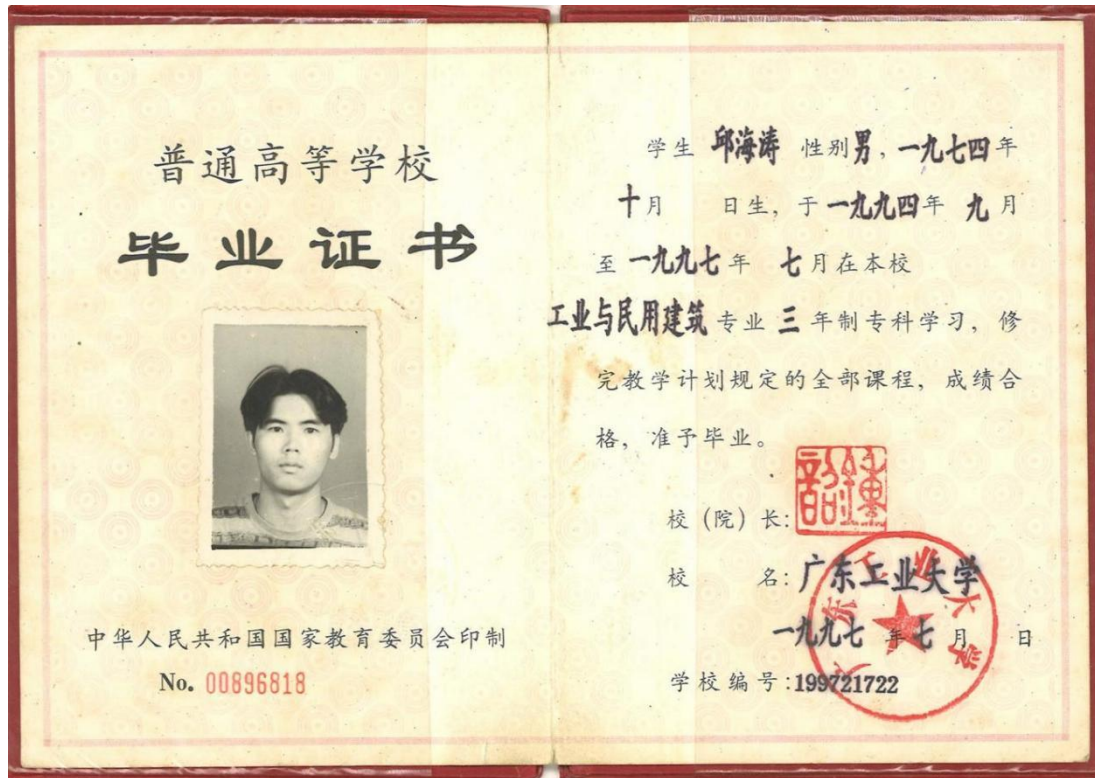 普通高等学校
毕业证书
中华人民共和国国家教育委员会印制
No. 00896818
学生 邱海涛 性别男，一九七四年
十月 日生，于一九九四年 九月
至一九九七年 七月在本校
工业与民用建筑专业 三 年制专科学习，修
完教学计划规定的全部课程，成绩合
格，准予毕业。
校（院）长：
校 名：广东工业大学
广东工业大学
一九九七 年七月 日
学校编号：199721722